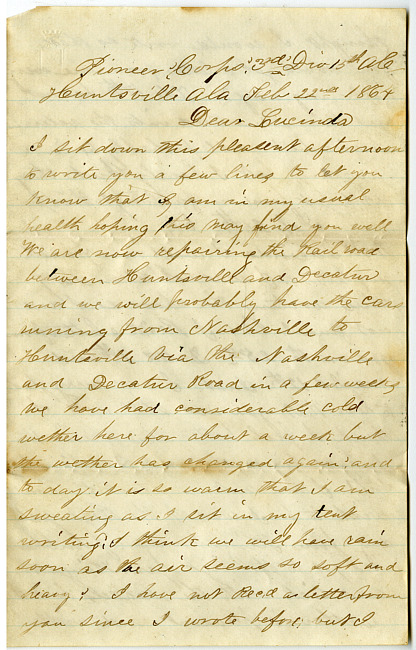 Pioneer Corps, 3rd Div 15th A.C.
Huntsville Ala Feb. 22nd 1864
Dear Lucinda
I sit down this pleasent afternoon
to write you a few lines to let you
know that I am in my usual
health hoping this may find you well
We are now repairing the Rail road
between Huntsvill and Decatur
and we will probably have the cars
runing from Nashville to
Huntsville via the Nashville
and Decatur Road in a few weeks
we have had considerable cold
wether here for about a week but
the wether has changed again and
to day it is so warm that I am
sweating as I sit in my tent
writing. I think we will have rain
soon as the air seems so soft and
heavy. I have not Recd a letter from
you since I wrote before, but I